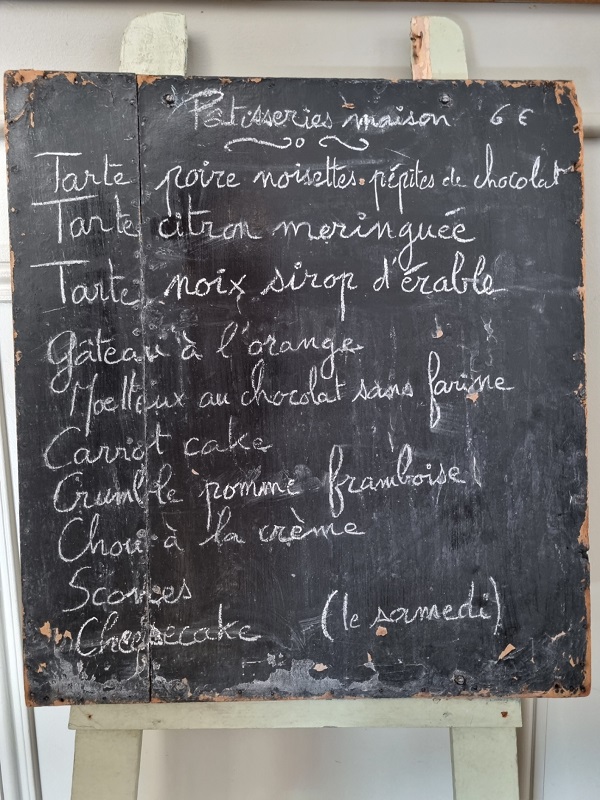 Patisseries maison 6 €
Tarte poire noisettes pépites de chocolat
Tarte citron meringuée
Tarte noix sirop d'érable
Gâteau à l'orange
Moelleux au chocolat sans farine
Carrot cake
Crumble pomme framboise
Chou à la crème
Scones
Cheesecake (le samedi)